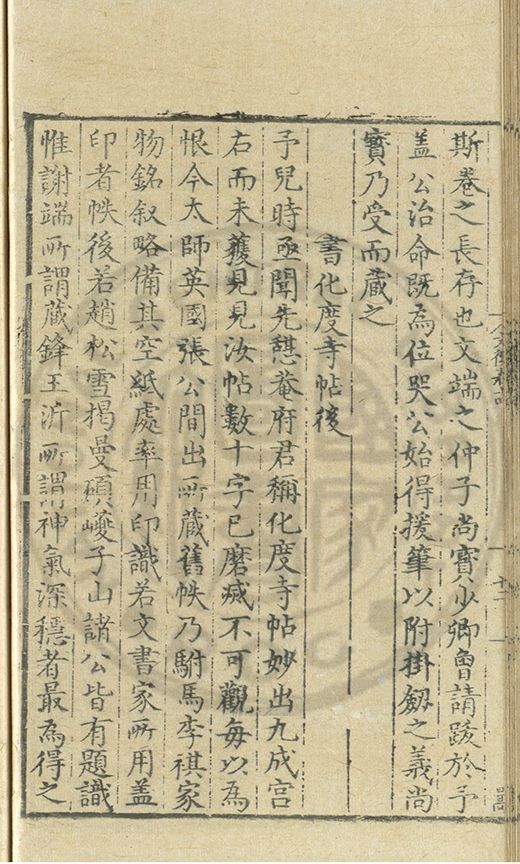 斯卷之長存也文端之仲子尚寶少卿魯請跋於予
盖公治命既為位哭公始得援筆以附掛劔之義尚
寳乃受而藏之
書化度寺帖後
予兒時亟聞先憇菴府君稱化度寺帖妙出九成宫
右而未獲見見汝帖數十字已磨滅不可觀每以為
恨今太師英國張公間出所藏舊帙乃駙馬李祺家
物銘叙略備其空紙處率用印識若文書家所用盖
印者帙後若趙松雪掲曼碩巙子山諸公皆有題識
惟謝端所謂藏鋒王沂所謂神氣深穩者最為得之